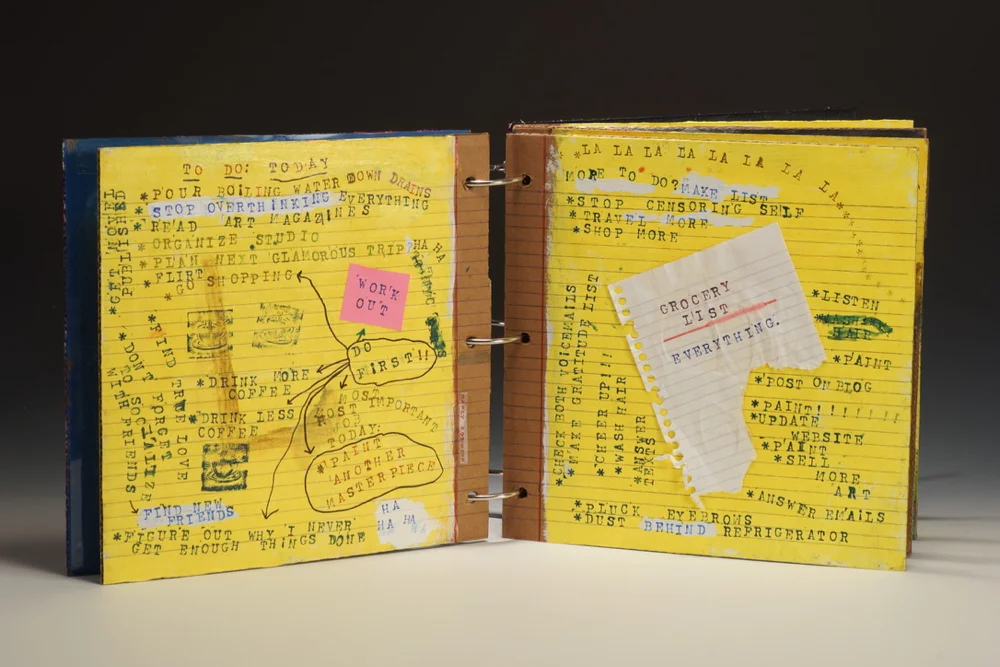 TO DO: TODAY
*POUR BOILING WATER DOWN DRAINS
*STOP OVERTHINKING EVERYTHING
*READ ART MAGAZINES
*ORGANIZE STUDIO
*PLAN NEXT GLAMOROUS TRIP?HA HA
*FLIRT
GO SHOPPING
WORK
OUT
DO
FIRST!!
*DRINK MORE
COFFEE
*DRINK LESS
COFFEE
MOST
MOST IMPORTANT
FOR
TODAY:
*PAINT
ANOTHER
MASTERPIECE
HA
HA HA
FIND NEW
FRIENDS
*FIGURE OUT WHY I NEVER
GET ENOUGH THINGS DONE
*GET NOVEL
PUBLISHED
*FIND TRUE LOVE
*DON'T FORGET
WITH SO FRIENDS
*LA LA LA LA LA LA LA LA***
MORE TO DO? MAKE LIST
*STOP CENSORING SELF
*TRAVEL MORE
*SHOP MORE
GROCERY
LIST
EVERYTHING.
*CHECK BOTH VOICEMAILS
*MAKE GRATITUDE LIST
*CHEER UP!!!
*WASH HAIR
*ANSWER
TEXTS
*LISTEN
*PAINT
*POST ON BLOG
*PAINT!!!!!!!
*UPDATE
WEBSITE
*PAINT
*SELL
MORE
ART
*ANSWER EMAILS
*PLUCK EYEBROWS
*DUST BEHIND REFRIGERATOR